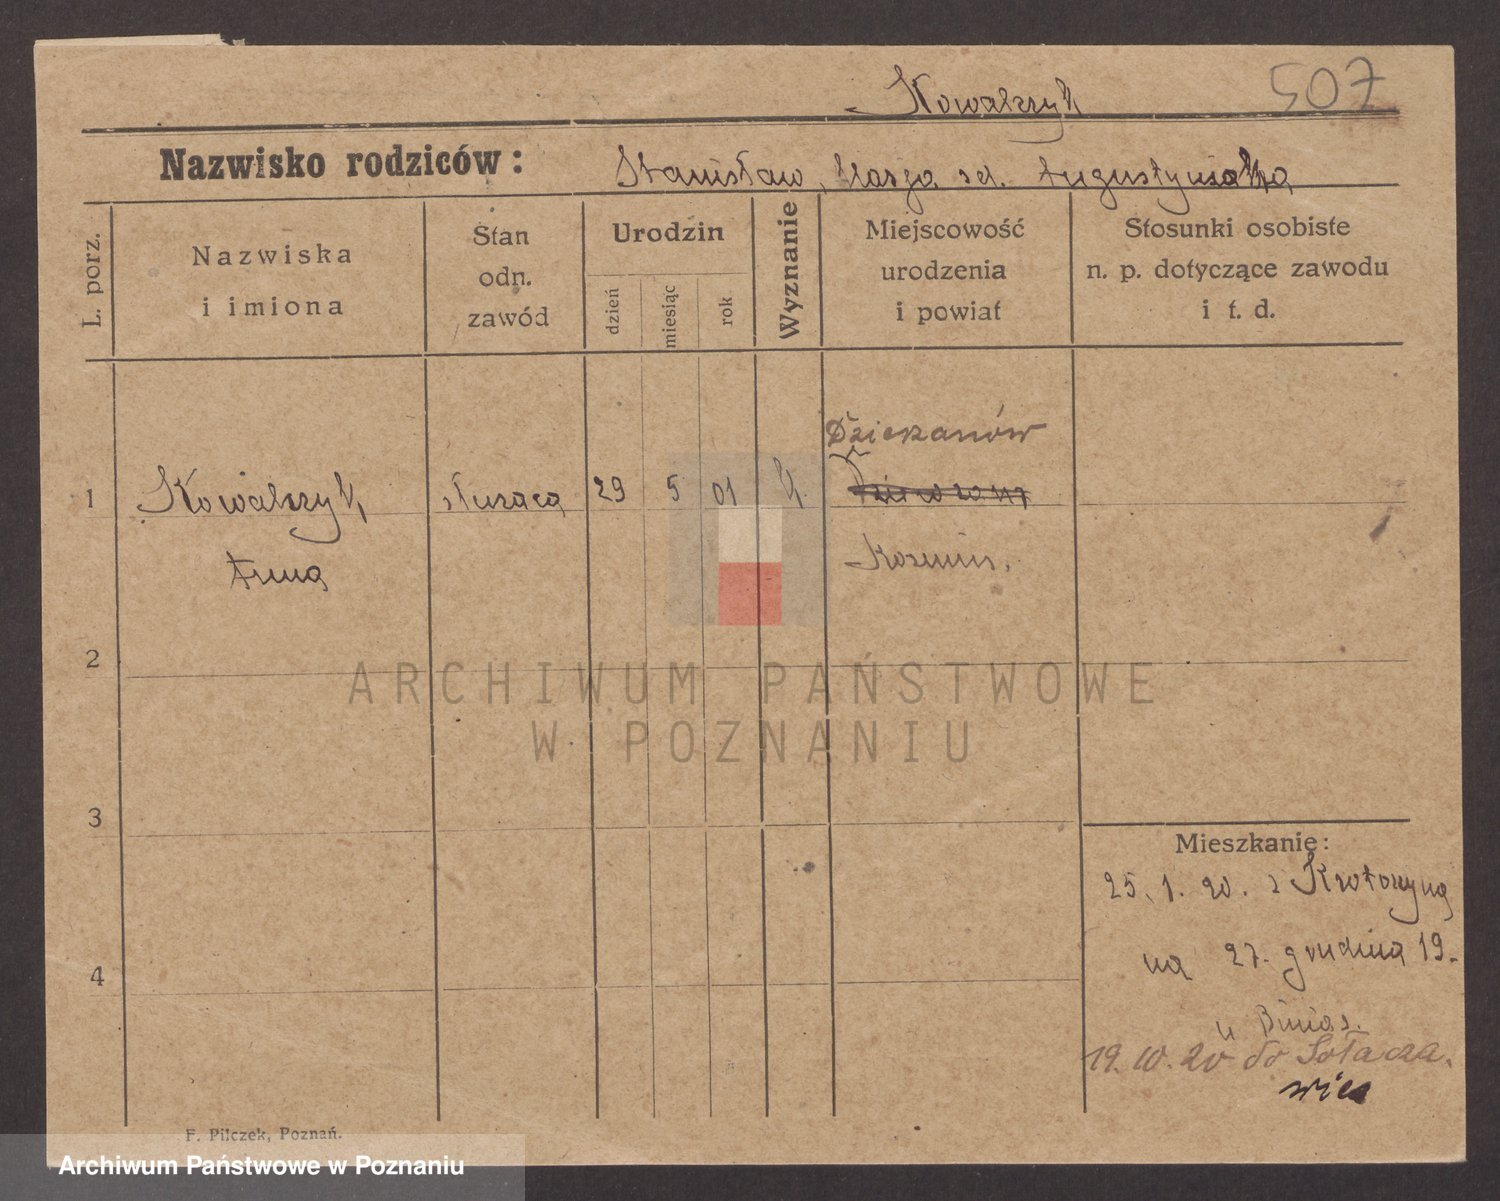 Kowalczyk 507
Nazwisko rodziców: Stanisław, Marja z d. Augustyniakka
L. porz.
Nazwiska
i imiona
Stan
odn.
zawód
Urodzin
dzień
miesiąc
rok
Wyznanie
Miejscowość
urodzenia
i powiat
Stosunki osobiste
n. p. dotyczące zawodu
i t. d.
Dziekanów
1 Kowalczyk służąca 29 5 01 k.
Anna Kozmin.
2
ARCHIWUM PAŃSTWOWE
W POZNANIU
3
Mieszkanie:
25.1.20. z Krotoszyna
4
na 27. grudnia 19.
u Binias.
19.10.20 do Sołacza.
wieś
F. Pilczek, Poznań.
Archiwum Państwowe w Poznaniu